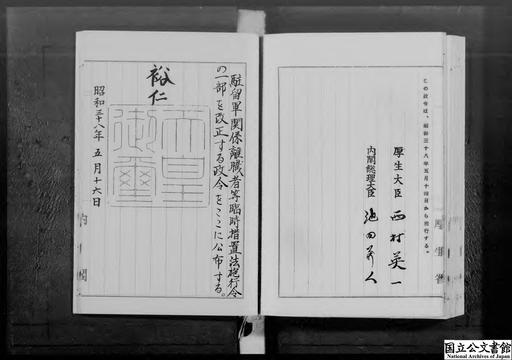 この政令は、昭和三十八年五月十四日から施行する。
厚生大臣 西村英一
内閣総理大臣 池田勇人
厚生省
駐留軍関係離職者等臨時措置法施行令
の一部を改正する政令をここに公布する。
裕仁
天皇
御璽
昭和三十八年五月十六日
内閣
国立公文書館
National Archives of Japan